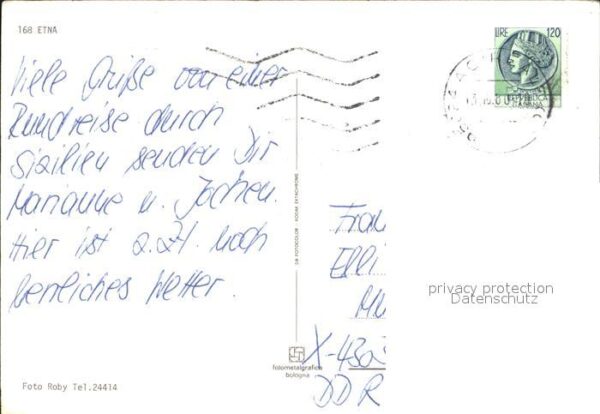 168 ETNA
LIRE 120
Viele Grüße von einer
Rundreise durch
Sizilien senden Dir
Marianne u. Jochen.
Hier ist z.Zt. noch
herrliches Wetter.
DA FOTOCOLOR KODAK EKTACHROME
Frau
Elli
X-430
DDR
privacy protection
Datenschutz
fotometalgrafica
bologna
Foto Roby Tel.24414